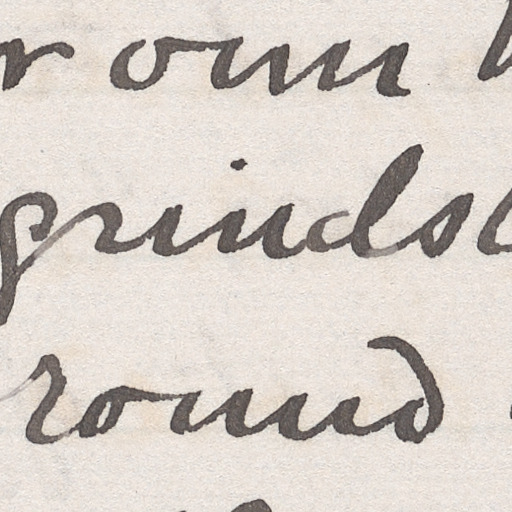 r own
grinds
round